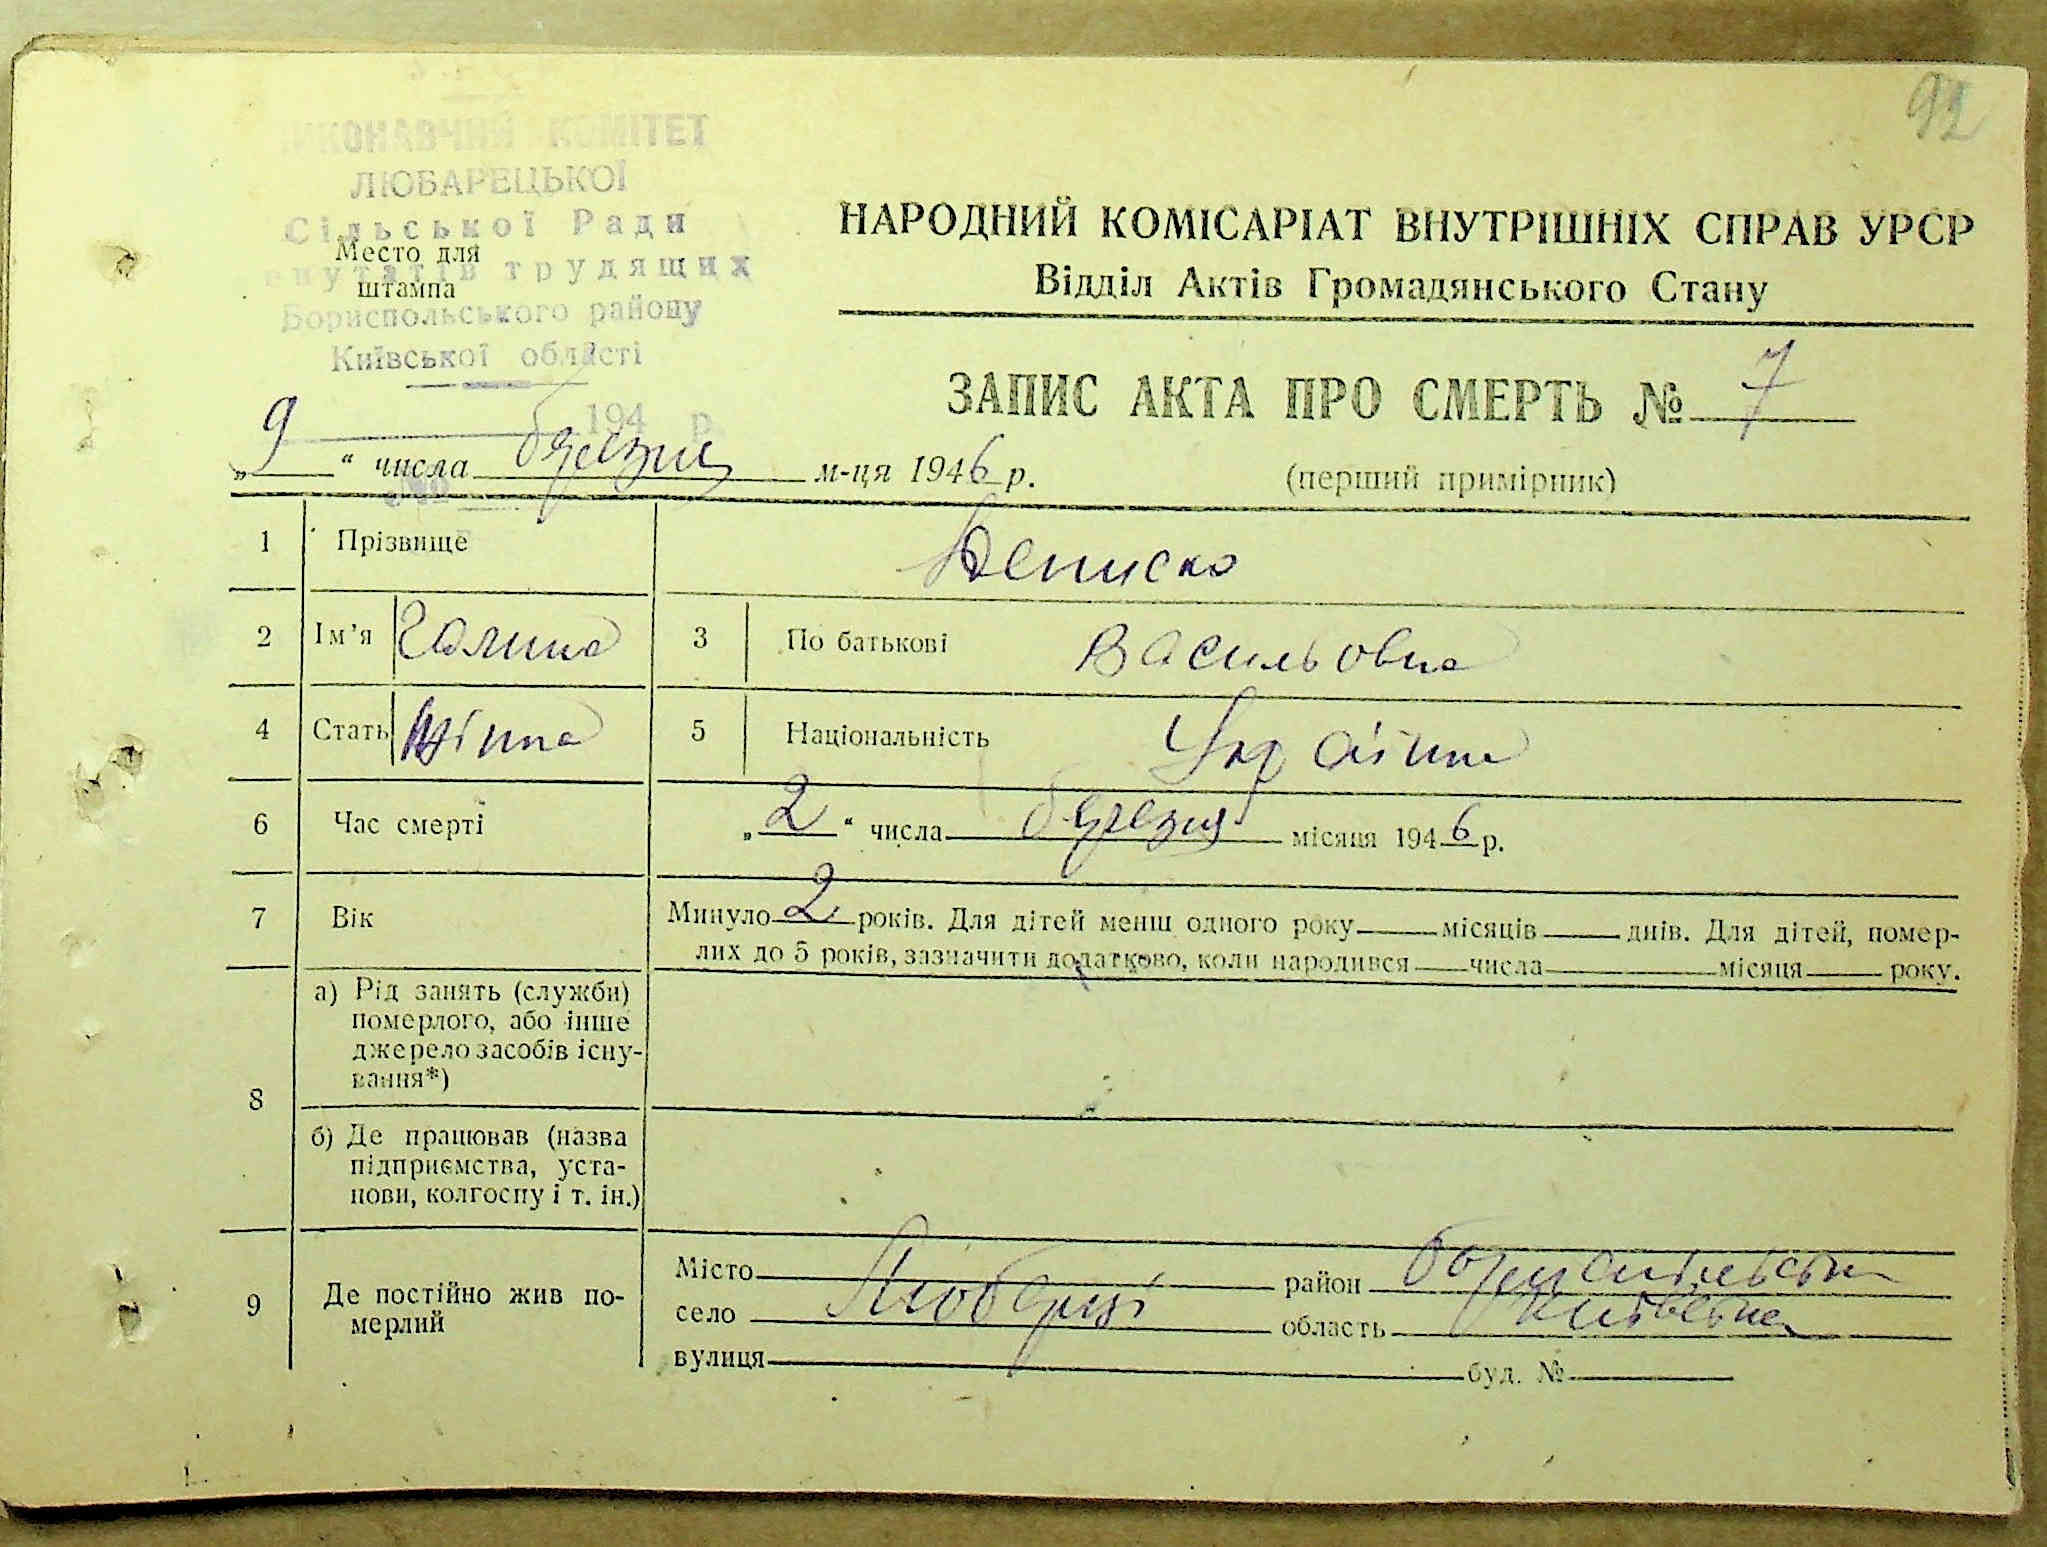 92
ВИКОНАВЧИЙ КОМІТЕТ
ЛЮБАРЕЦЬКОЇ
Сільської Ради
депутатів трудящих
Бориспольського району
Київської області
194 р.
№
Место для
штампа
НАРОДНИЙ КОМІСАРІАТ ВНУТРІШНІХ СПРАВ УРСР
Відділ Актів Громадянського Стану
ЗАПИС АКТА ПРО СМЕРТЬ № 7
„9“ числа березня м-ця 1946 р.
(перший примірник)
1 Прізвище Дениско
2 Ім’я Галина 3 По батькові Васильовна
4 Стать жінка 5 Національність Українка
6 Час смерті „2“ числа березня місяця 1946 р.
7 Вік Минуло 2 років. Для дітей менш одного року місяців днів. Для дітей, помер-
лих до 5 років, зазначити додатково, коли народився числа місяця року.
8 а) Рід занять (служби)
померлого, або інше
джерело засобів існу-
вання*)
б) Де працював (назва
підприємства, уста-
нови, колгоспу і т. ін.)
9 Де постійно жив по-
мерлий
Місто район Бориспільськ
село Любарці область Київська
вулиця буд. №